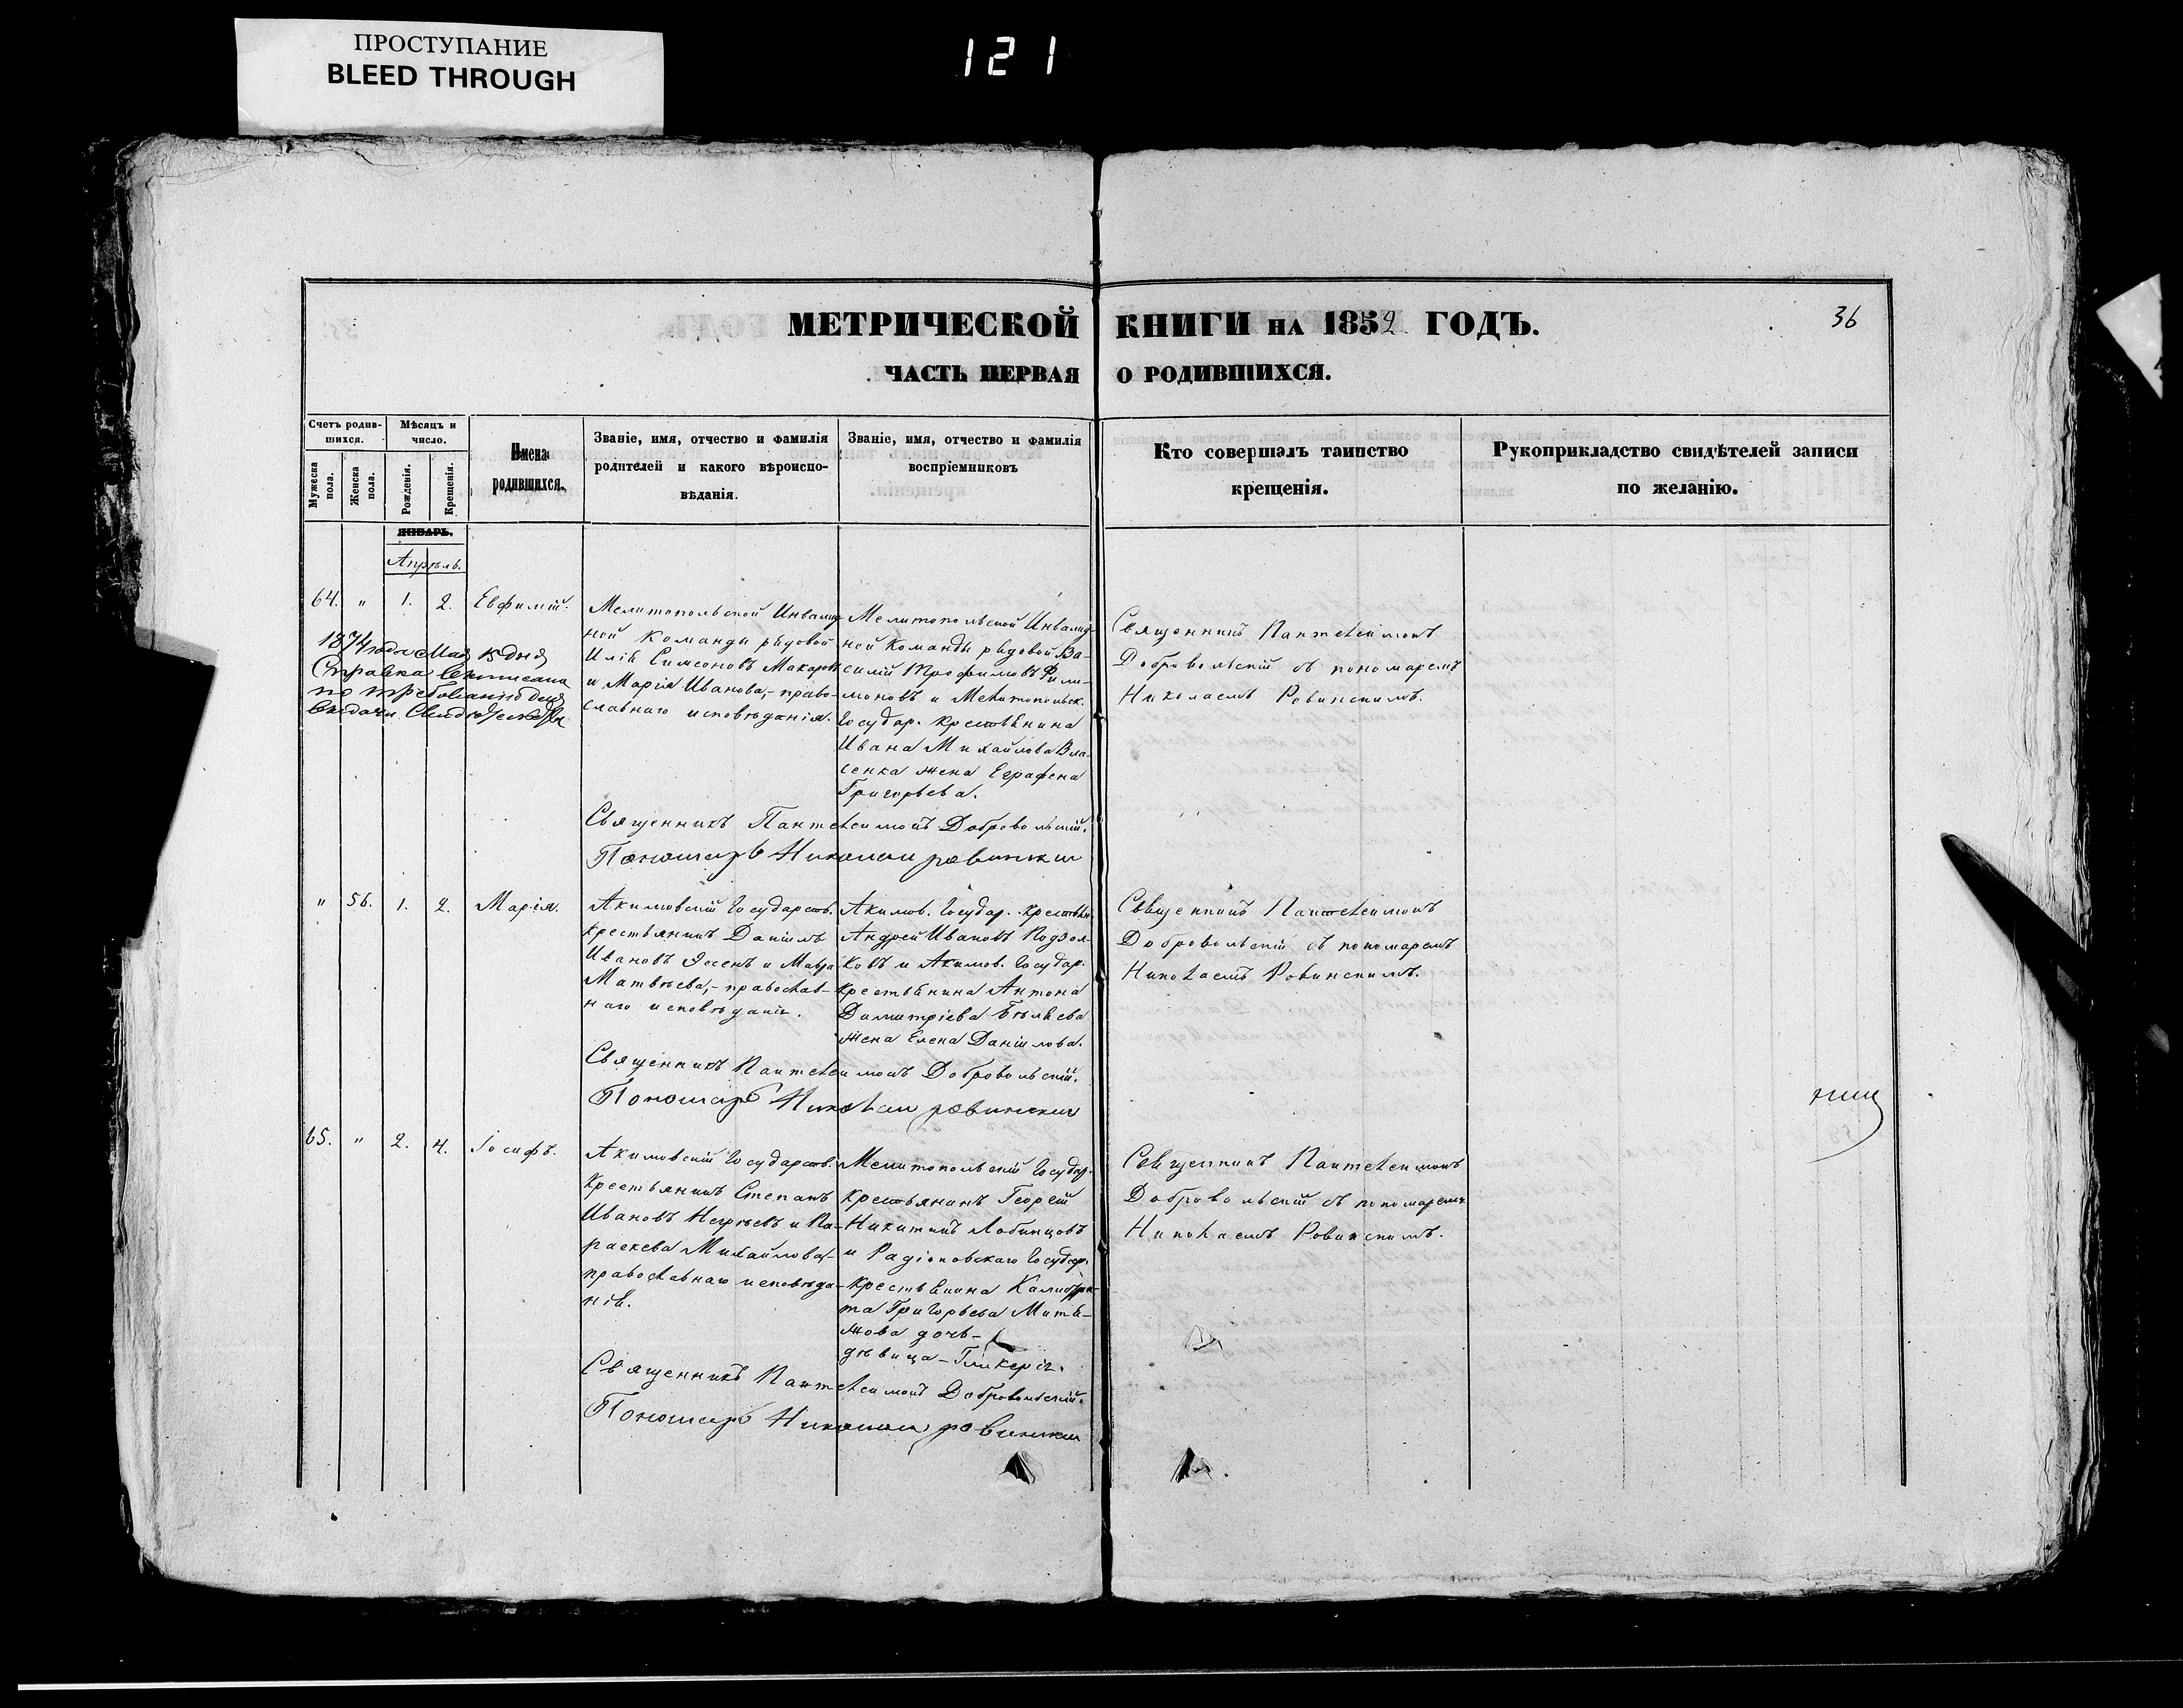 ПРОСТУПАНИЕ
BLEED THROUGH
121
МЕТРИЧЕСКОЙ КНИГИ НА 1852 ГОДЪ.
36
ЧАСТЬ ПЕРВАЯ О РОДИВШИХСЯ.
Счетъ родив-
шихся.
Мужеска
пола.
Женска
пола.
Мѣсяцъ и
число.
Рожденія.
Крещенія.
Имена
родившихся.
Званіе, имя, отчество и фамилія
родителей и какого вѣроиспо-
вѣданія.
Званіе, имя, отчество и фамилія
воспріемниковъ
Кто совершалъ таинство
крещенія.
Рукоприкладство свидѣтелей записи
по желанію.
ЯНВАРЬ.
Апрѣль.
64. " 1. 2. Евфимій.
1874 года Мая 15 дня
Справка
по требованію для
выдачи
Мелитопольской Инвалид-
ной Команды рядовой
Илія Симеоновъ Макаровъ
и Марія Иванова,- право-
славнаго исповѣданія.
Мелитопольской Инвалид-
ной Команды рядовой Ва-
силій Трофимовъ Фили-
моновъ и Мелитопольск.
Государ. крестьянина
Ивана Михайлова Вла-
сенка жена Еграфена
Григорьева.
Священникъ Пантелеимонъ
Добровольскій съ пономаремъ
Николаемъ Ровинскимъ.
Священникъ Пантелеимонъ Добровольскій.
Пономарь Николай ровински
" 56. 1. 2. Марія.
Акимовскій Государств.
крестьянинъ Даніилъ
Ивановъ и Мавра
Матвѣева,- православ-
наго исповѣданія.
Акимов. Государ. крестьян.
Андрей Ивановъ Подзол-
ковъ и Акимов. Государ.
крестьянина Антона
Димитріева Бѣляева
жена Елена Даніилова.
Священникъ Пантелеимонъ
Добровольскій съ пономаремъ
Николаемъ Ровинскимъ.
Священникъ Пантелеимонъ Добровольскій.
Пономарь Николаи ровински
65. " 2. 4. Іосифъ.
Акимовскій Государств.
Крестьянинъ Степанъ
Ивановъ и Па-
раскева Михайлова,-
православнаго исповѣда-
нія.
Мелитопольскій Государ.
крестьянинъ Георгій
Никитинъ Лобинцовъ
и Радіоновскаго Государ.
крестьянина
та Григорьева Митя-
жова дочь-
дѣвица-Гликерія.
Священникъ Пантелеимонъ
Добровольскій съ пономаремъ
Николаемъ Ровинскимъ.
Священникъ Пантелеимонъ Добровольскій.
Пономарь Николаи ровински